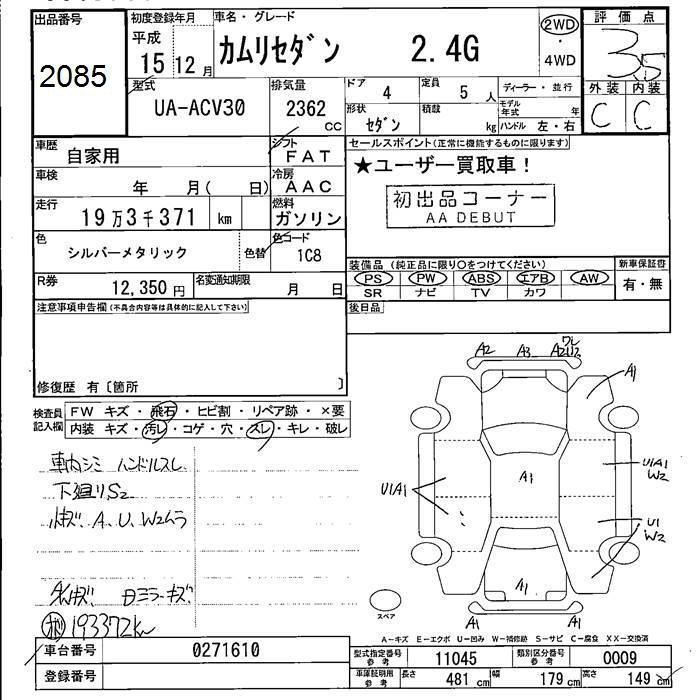 出品番号 2085
初度登録年月 平成 15 12 月
車名・グレード カムリセダン 2.4G
2WD ・ 4WD
評価点 3.5
外装 C 内装 C
型式 UA-ACV30
排気量 2362 CC
ドア 4 定員 5 人
ディーラー・並行
形状 セダン 積載 kg
モデル年式 年
ハンドル 左・右
車歴 自家用
シフト FAT
セールスポイント(正常に機能するものに限ります)
★ユーザー買取車！
車検 年 月( 日)
冷房 AAC
初出品コーナー
AA DEBUT
走行 19万3千371 km
燃料 ガソリン
色 シルバーメタリック 色替
色コード 1C8
装備品(純正品に限り○をつけてください)
新車保証書
PS PW ABS エアB AW
有・無
SR ナビ TV カワ
R券 12,350 円
名変通知期限 月 日
後日品
注意事項申告欄(不具合内容等は具体的に記入して下さい)
修復歴 有〔箇所 〕
検査員記入欄
FW キズ・飛石・ヒビ割・リペア跡・×要
内装 キズ・汚レ・コゲ・穴・スレ・キレ・破レ
車内シミ ハンドルスレ
下廻りS2
小キズ、A、U、W2ムラ
193372km
A2 A3 A2U2 ワレ
A1
A1
U1A1
W2
U1A1
U1
W2
A1
A1 A1
スペア
A-キズ E-エクボ U-凹み W-補修跡 S-サビ C-腐食 XX-交換済
車台番号 0271610
型式指定番号 参考 11045
類別区分番号 参考 0009
登録番号
車庫証明用 参考 長さ 481 cm 幅 179 cm 高さ 149 cm